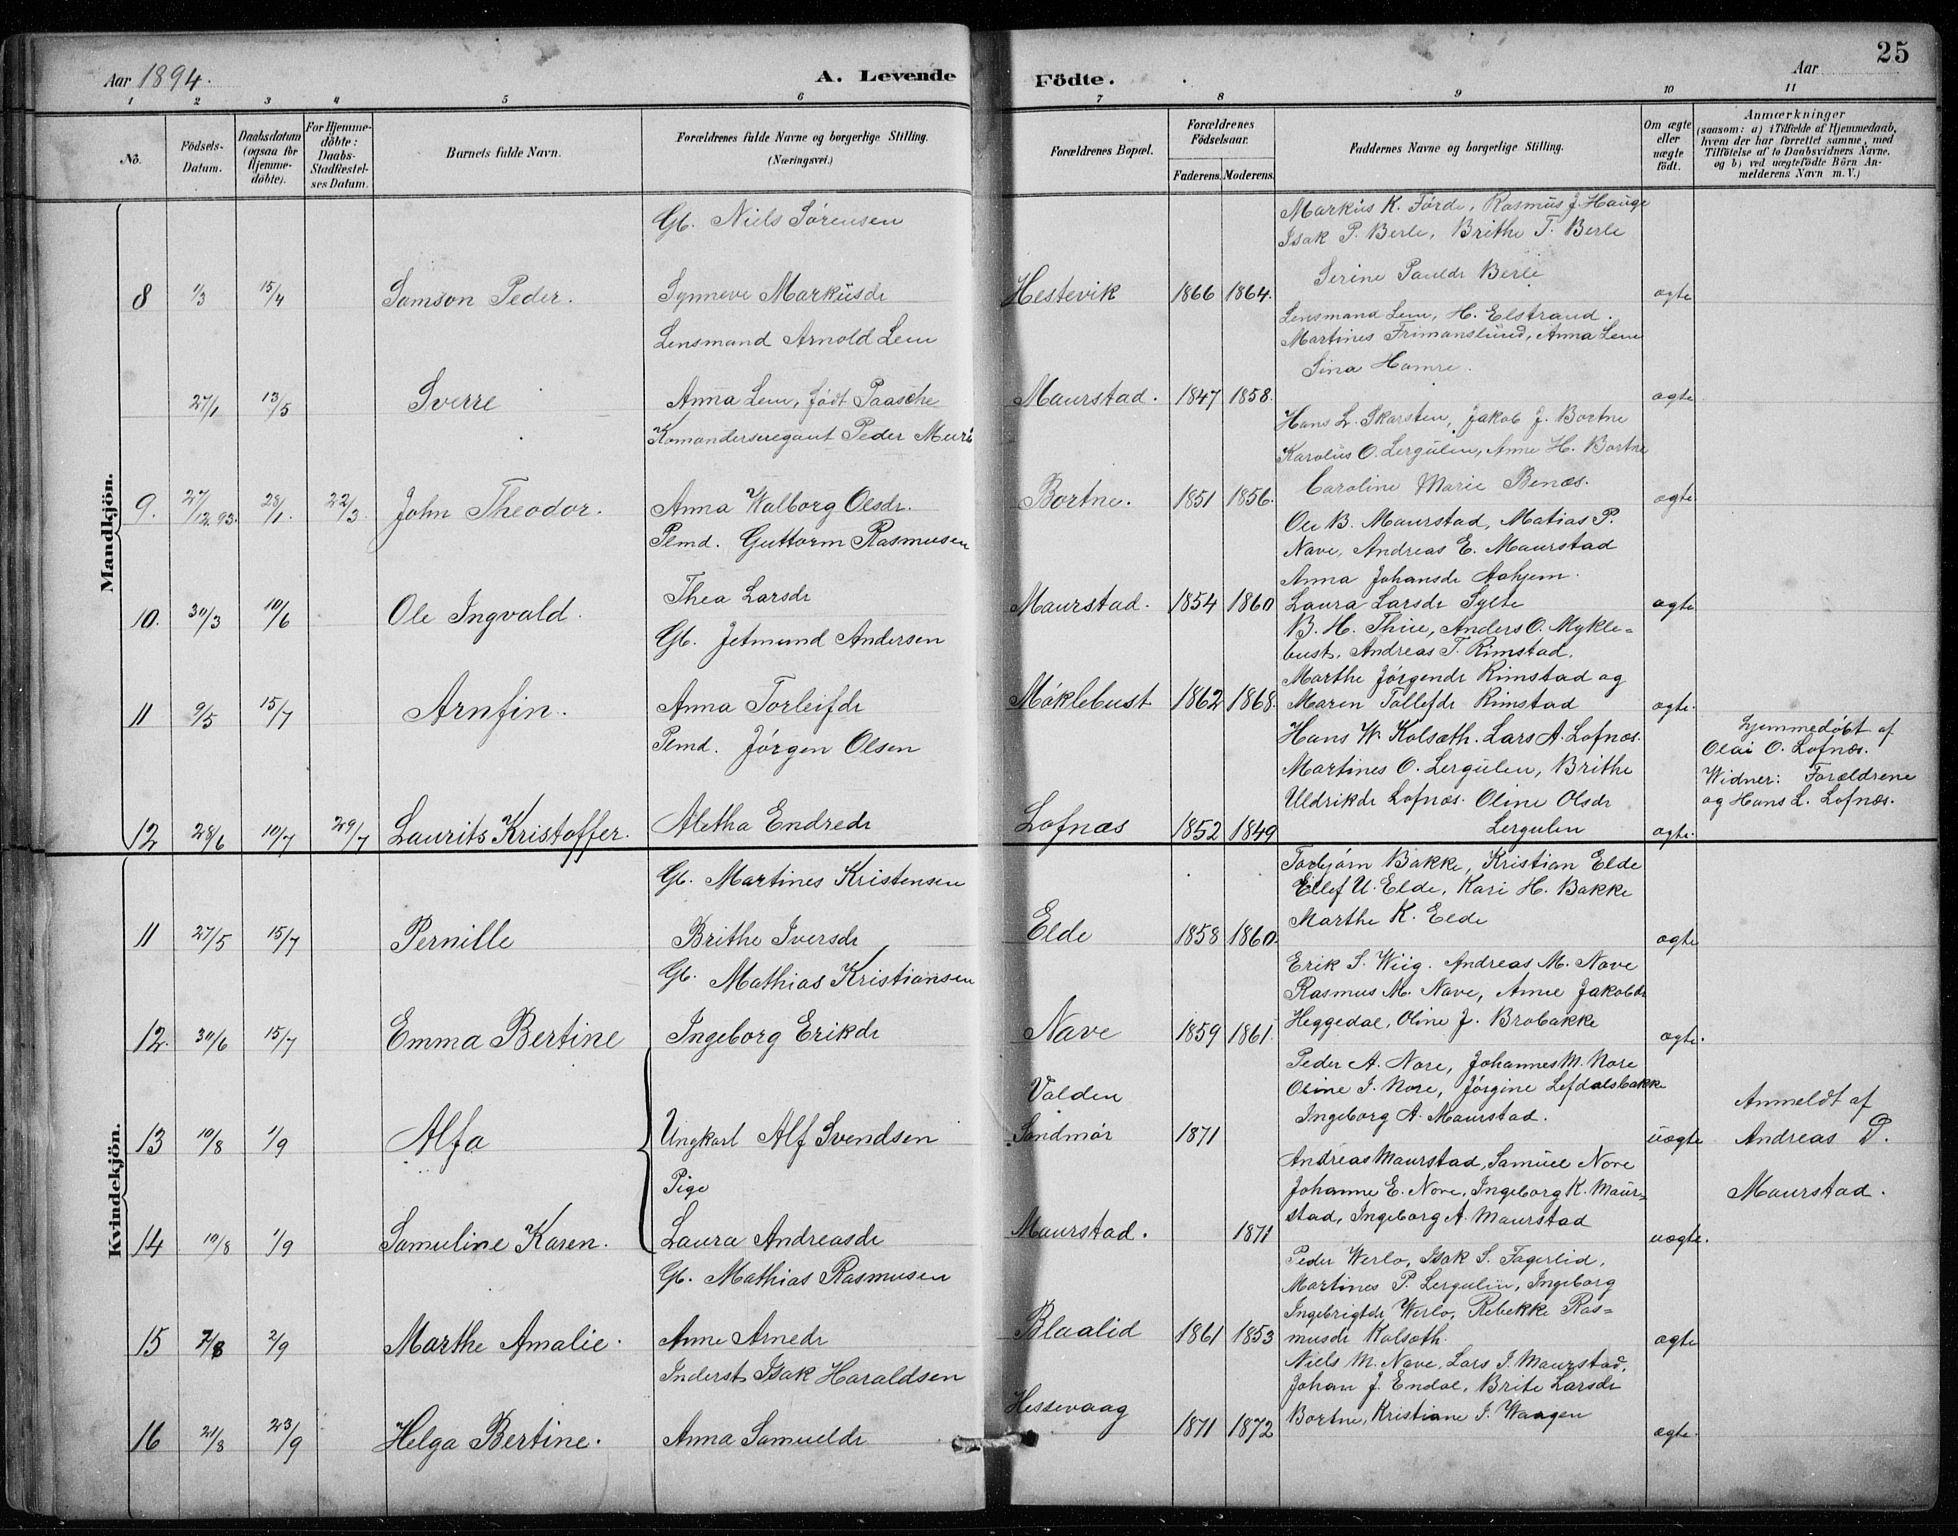 Aar 1894.
A. Levende Födte.
Aar
25
1 2 3 4 5 6 7 8 9 10 11
No.
Födsels-Datum.
Daabsdatum (ogsaa for Hjemme-döbte).
For Hjemme-döbte: Daabs-Stadfæstel-ses Datum.
Barnets fulde Navn.
Forældrenes fulde Navne og borgerlige Stilling.
(Næringsvei.)
Forældrenes Bopæl.
Forældrenes Födselsaar.
Faderens. Moderens.
Faddernes Navne og borgerlige Stilling.
Om ægte eller uægte födt.
Anmærkninger
(saasom: a) i Tilfælde af Hjemmedaab,
hvem der har forrettet samme, med
Tilföielse af to Daabsvidners Navne,
og b) ved uægtefödte Börn An-
melderens Navn m. V.)
Mandkjön.
Gb. Niels Sörensen
Markus K. Förde, Rasmus J. Hauge
Isak P. Berle, Brithe T. Berle
Serine Paulds Berle
8 1/3 15/4 Samson Peder. Synneve Markusdr Hestevik 1866 1864. ægte
Lensmand Arnold Lem
Lensmand Lem, H. Elstrand.
Martines Frimanslund, Anna Lem
Sina Hamre.
27/1 13/5 Sverre Anna Lem, född Paasche Maurstad. 1847 1858. ægte
Komandersergant Peder Muri
Hans L. Skarsten, Jakob J. Bortne
Karolus O. Lergulen, Anne H. Bortne
Caroline Marie Benæs.
9. 27/12.93. 28/1. 22/3. John Theodor. Anna Walborg Olsdr. Bortne. 1851 1856. ægte
Plmd. Guttorm Rasmusen
Ole B. Maurstad, Matias P.
Nave, Andreas E. Maurstad
Anna Johansdr Aahjem.
10. 30/3 10/6 Ole Ingvald. Thea Larsdr Maurstad. 1854 1860 Laura Larsdr Sylte ægte
Gb. Jetmund Andersen
B. H. Thue, Anders O. Mykle-
bust, Andreas T. Rimstad,
Marthe Jörgendr Rimstad og
11 9/5 15/7 Arnfin. Anna Torleifdr Möklebust 1862 1868. Maren Tollefdr Rimstad ægte.
Plmd. Jörgen Olsen
Hans W. Kolsæth. Lars A. Lofnæs.
Martines O. Lergulen, Brithe
Uldrikdr Lofnæs. Oline Olsdr
Lergulen
hjemmedöbt af
Olai O. Lofnæs.
Widner: Forældrene
og Hans L. Lofnæs.
12 28/6 10/7 29/7 Laurits Kristoffer. Aletha Endredr Lofnæs 1852 1849 ægte.
Kvindekjön.
Gb. Martines Kristensen
Torbjörn Bakke, Kristian Elde
Ellef U. Elde, Kari H. Bakke
Marthe K. Elde
11 27/5 15/7 Pernille Brithe Iversdr Elde 1858 1860. ægte
Gb. Mathias Kristiansen
Erik S. Wiig. Andreas M. Nave
Rasmus M. Nave, Anne Jakobdr
Heggedal, Oline J. Brobakke
12. 30/6 15/7 Emma Bertine Ingeborg Erikdr Nave 1859 1861. ægte.
Peder A. Nore, Johannes M. Nore
Oline I. Nore, Jörgine Lefdalsbakke
Ingeborg A. Maurstad.
Valden
13 10/8 1/9 Alfa Ungkarl Alf Svendsen Söndmör 1871 uægte
Anmeldt af
Andreas P.
Maurstad.
Andreas Maurstad, Samuel Nore
Johanne E. Nore, Ingeborg K. Maur-
stad, Ingeborg A. Maurstad
Pige
14 10/8 1/9 Samuline Karen. Laura Andreasdr Maurstad. 1871 uægte.
Gb. Mathias Rasmusen
Peder Werlo, Isak S. Fagerlid,
Martines P. Lergulen, Ingeborg
Ingebrigtdr Werlo, Rebekke Ras-
musdr Kolsæth.
15 7/8 2/9 Marthe Amalie. Anne Arnedr Blaalid 1861 1853 ægte
Inderst Isak Haraldsen
Niels M. Nave, Lars I. Maurstad,
Johan J. Endal, Brite Larsdr
Bortne, Kristiane I. Waagen
16 21/8 23/9 Helga Bertine. Anna Samueldr Hessevaag 1871 1872 ægte.